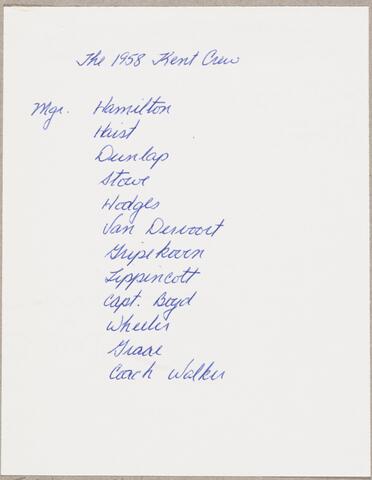 The 1958 Kent Crew
Mgr. Hamilton
Haist
Dunlap
Stowe
Hodges
Van Dervoort
Gripekoven
Lippincott
Capt. Boyd
Wheeler
Coach Walker